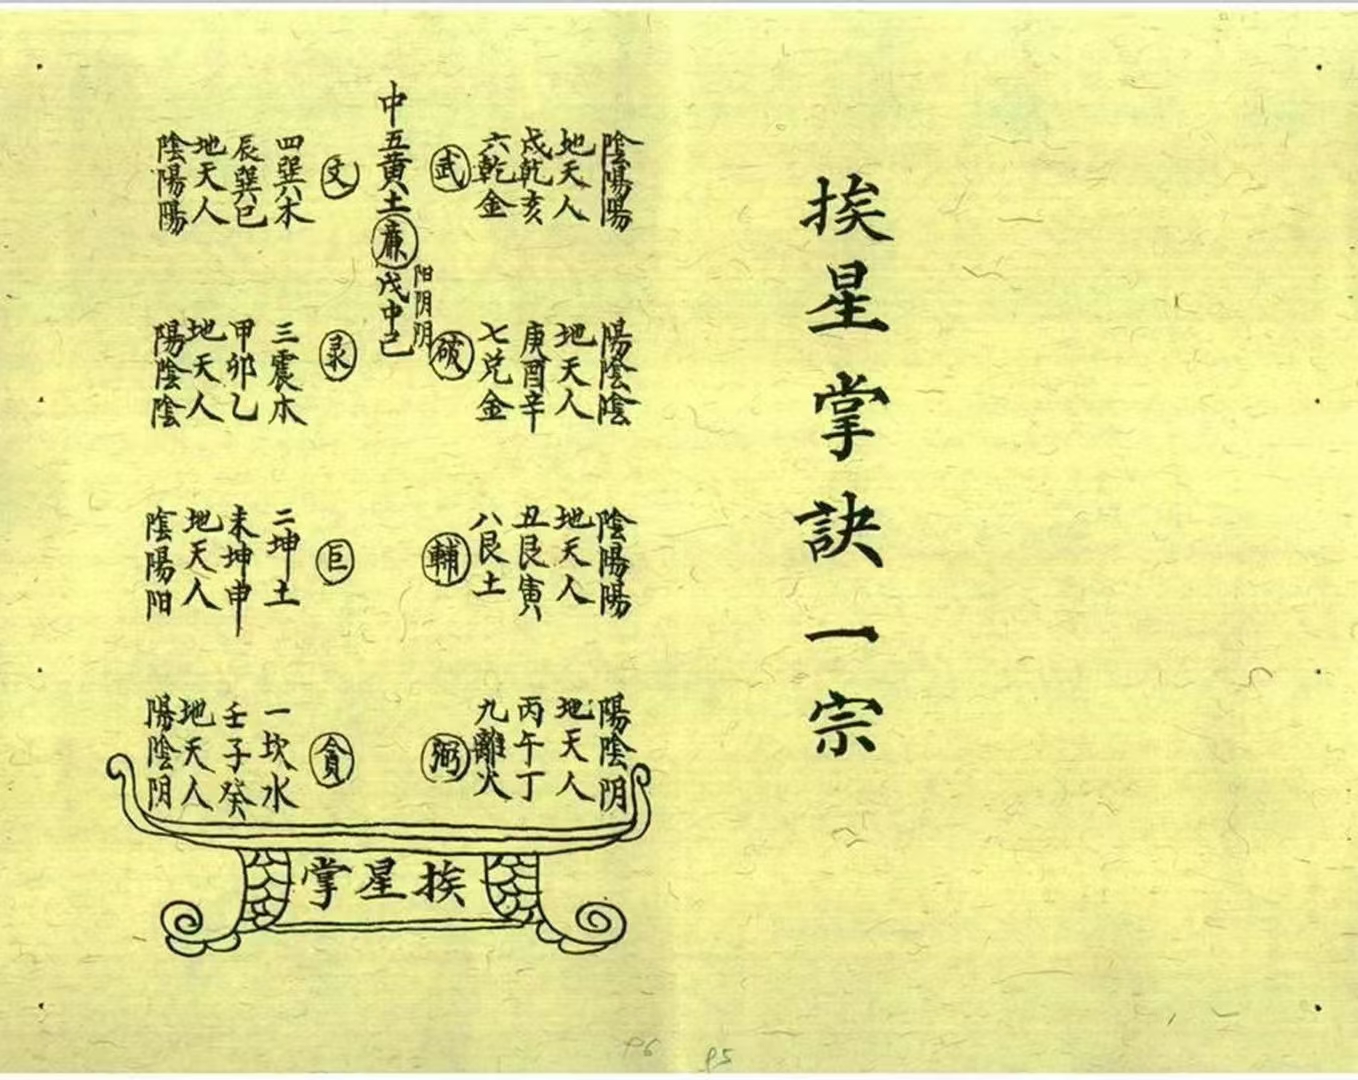 挨星掌訣一宗
陰陽陽
地天人
戍乾亥
六乾金
武
中五黄土
廉
戊中己
阳阴阴
文
四巽木
辰巽巳
地天人
陰陽陽
陽陰陰
地天人
庚酉辛
七兑金
破
录
三震木
甲卯乙
地天人
陽陰陰
陰陽陽
地天人
丑艮寅
八艮土
輔
巨
二坤土
未坤申
地天人
陰陽阳
陽陰阴
地天人
丙午丁
九離火
弼
貪
一坎水
壬子癸
地天人
陽陰阴
挨星掌
P6
P5